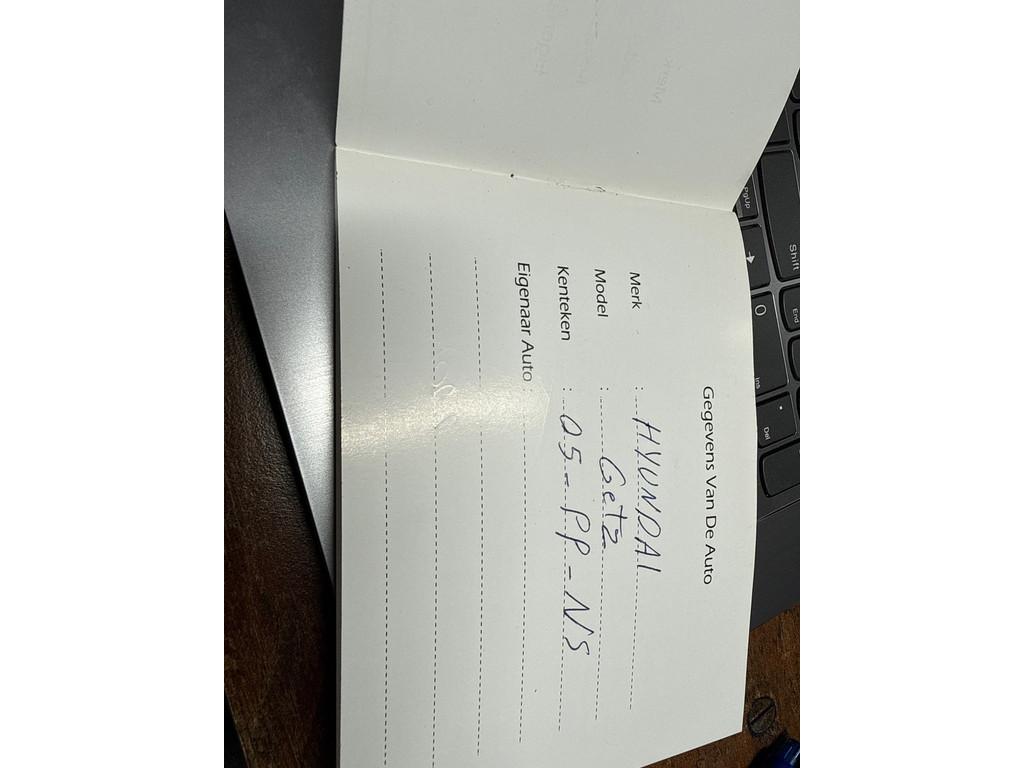 Gegevens Van De Auto
Merk : HYUNDAI
Model : Getz
Kenteken : 05-PP-NS
Eigenaar Auto :
PgUp
Shift
End
0
Ins
Del